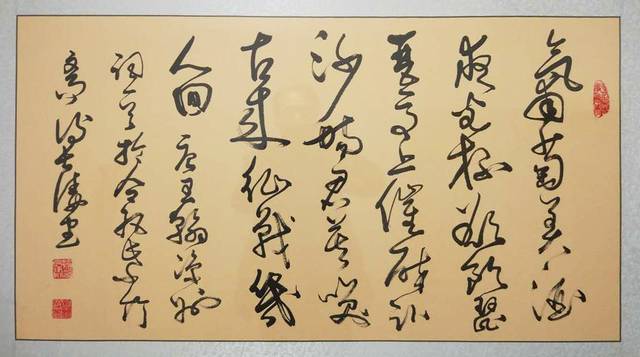 葡萄美酒
夜光杯欲飲琵
琶馬上催醉卧
沙場君莫笑
古來征戰幾
人回 唐王翰凉州
詞 於合肥
書